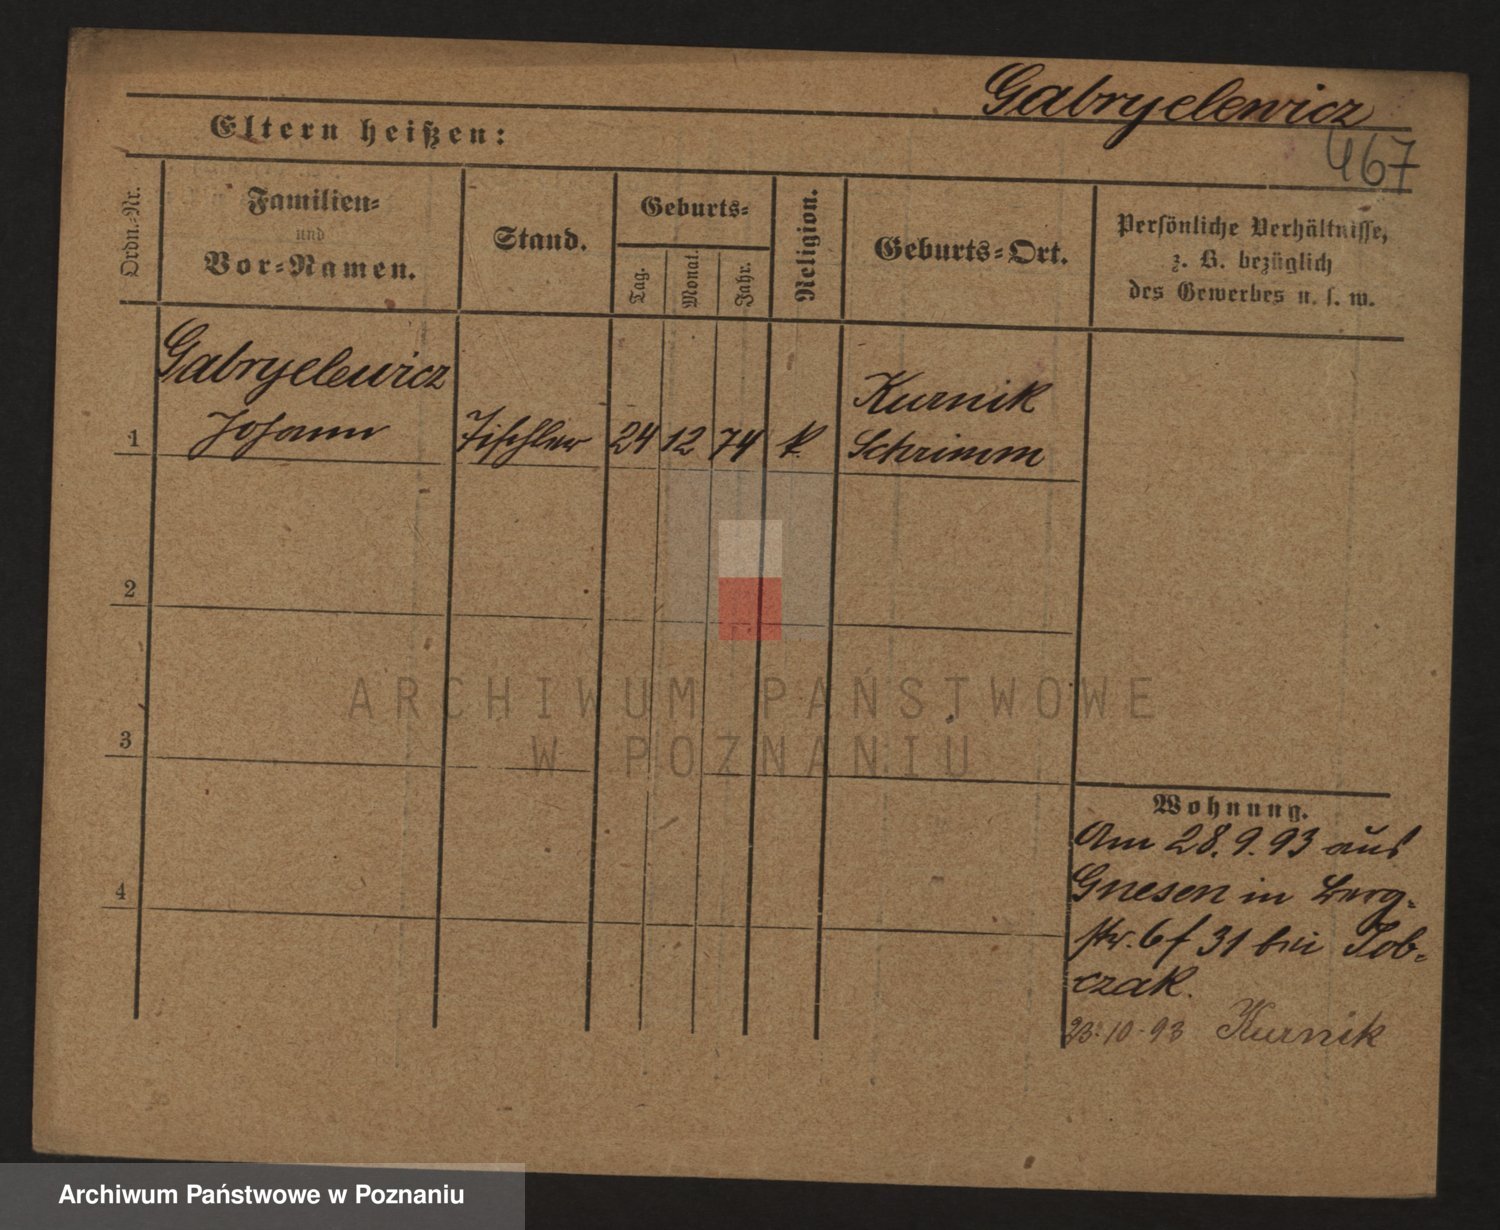 Gabryelewicz
467
Eltern heißen:
Ordn.-Nr.
Familien-
und
Vor-Namen.
Stand.
Geburts-
Tag.
Monat.
Jahr.
Religion.
Geburts-Ort.
Persönliche Verhältnisse,
z. B. bezüglich
des Gewerbes u. s. w.
Gabryelewicz
Johann
1
Tischler
24
12
74
k.
Kurnik
Schrimm
2
3
4
Wohnung.
Am 28.9.93 aus
Gnesen in Berg-
str. 6 f 31 bei Sob-
czak.
23.10.93 Kurnik
ARCHIWUM PAŃSTWOWE
W POZNANIU
Archiwum Państwowe w Poznaniu